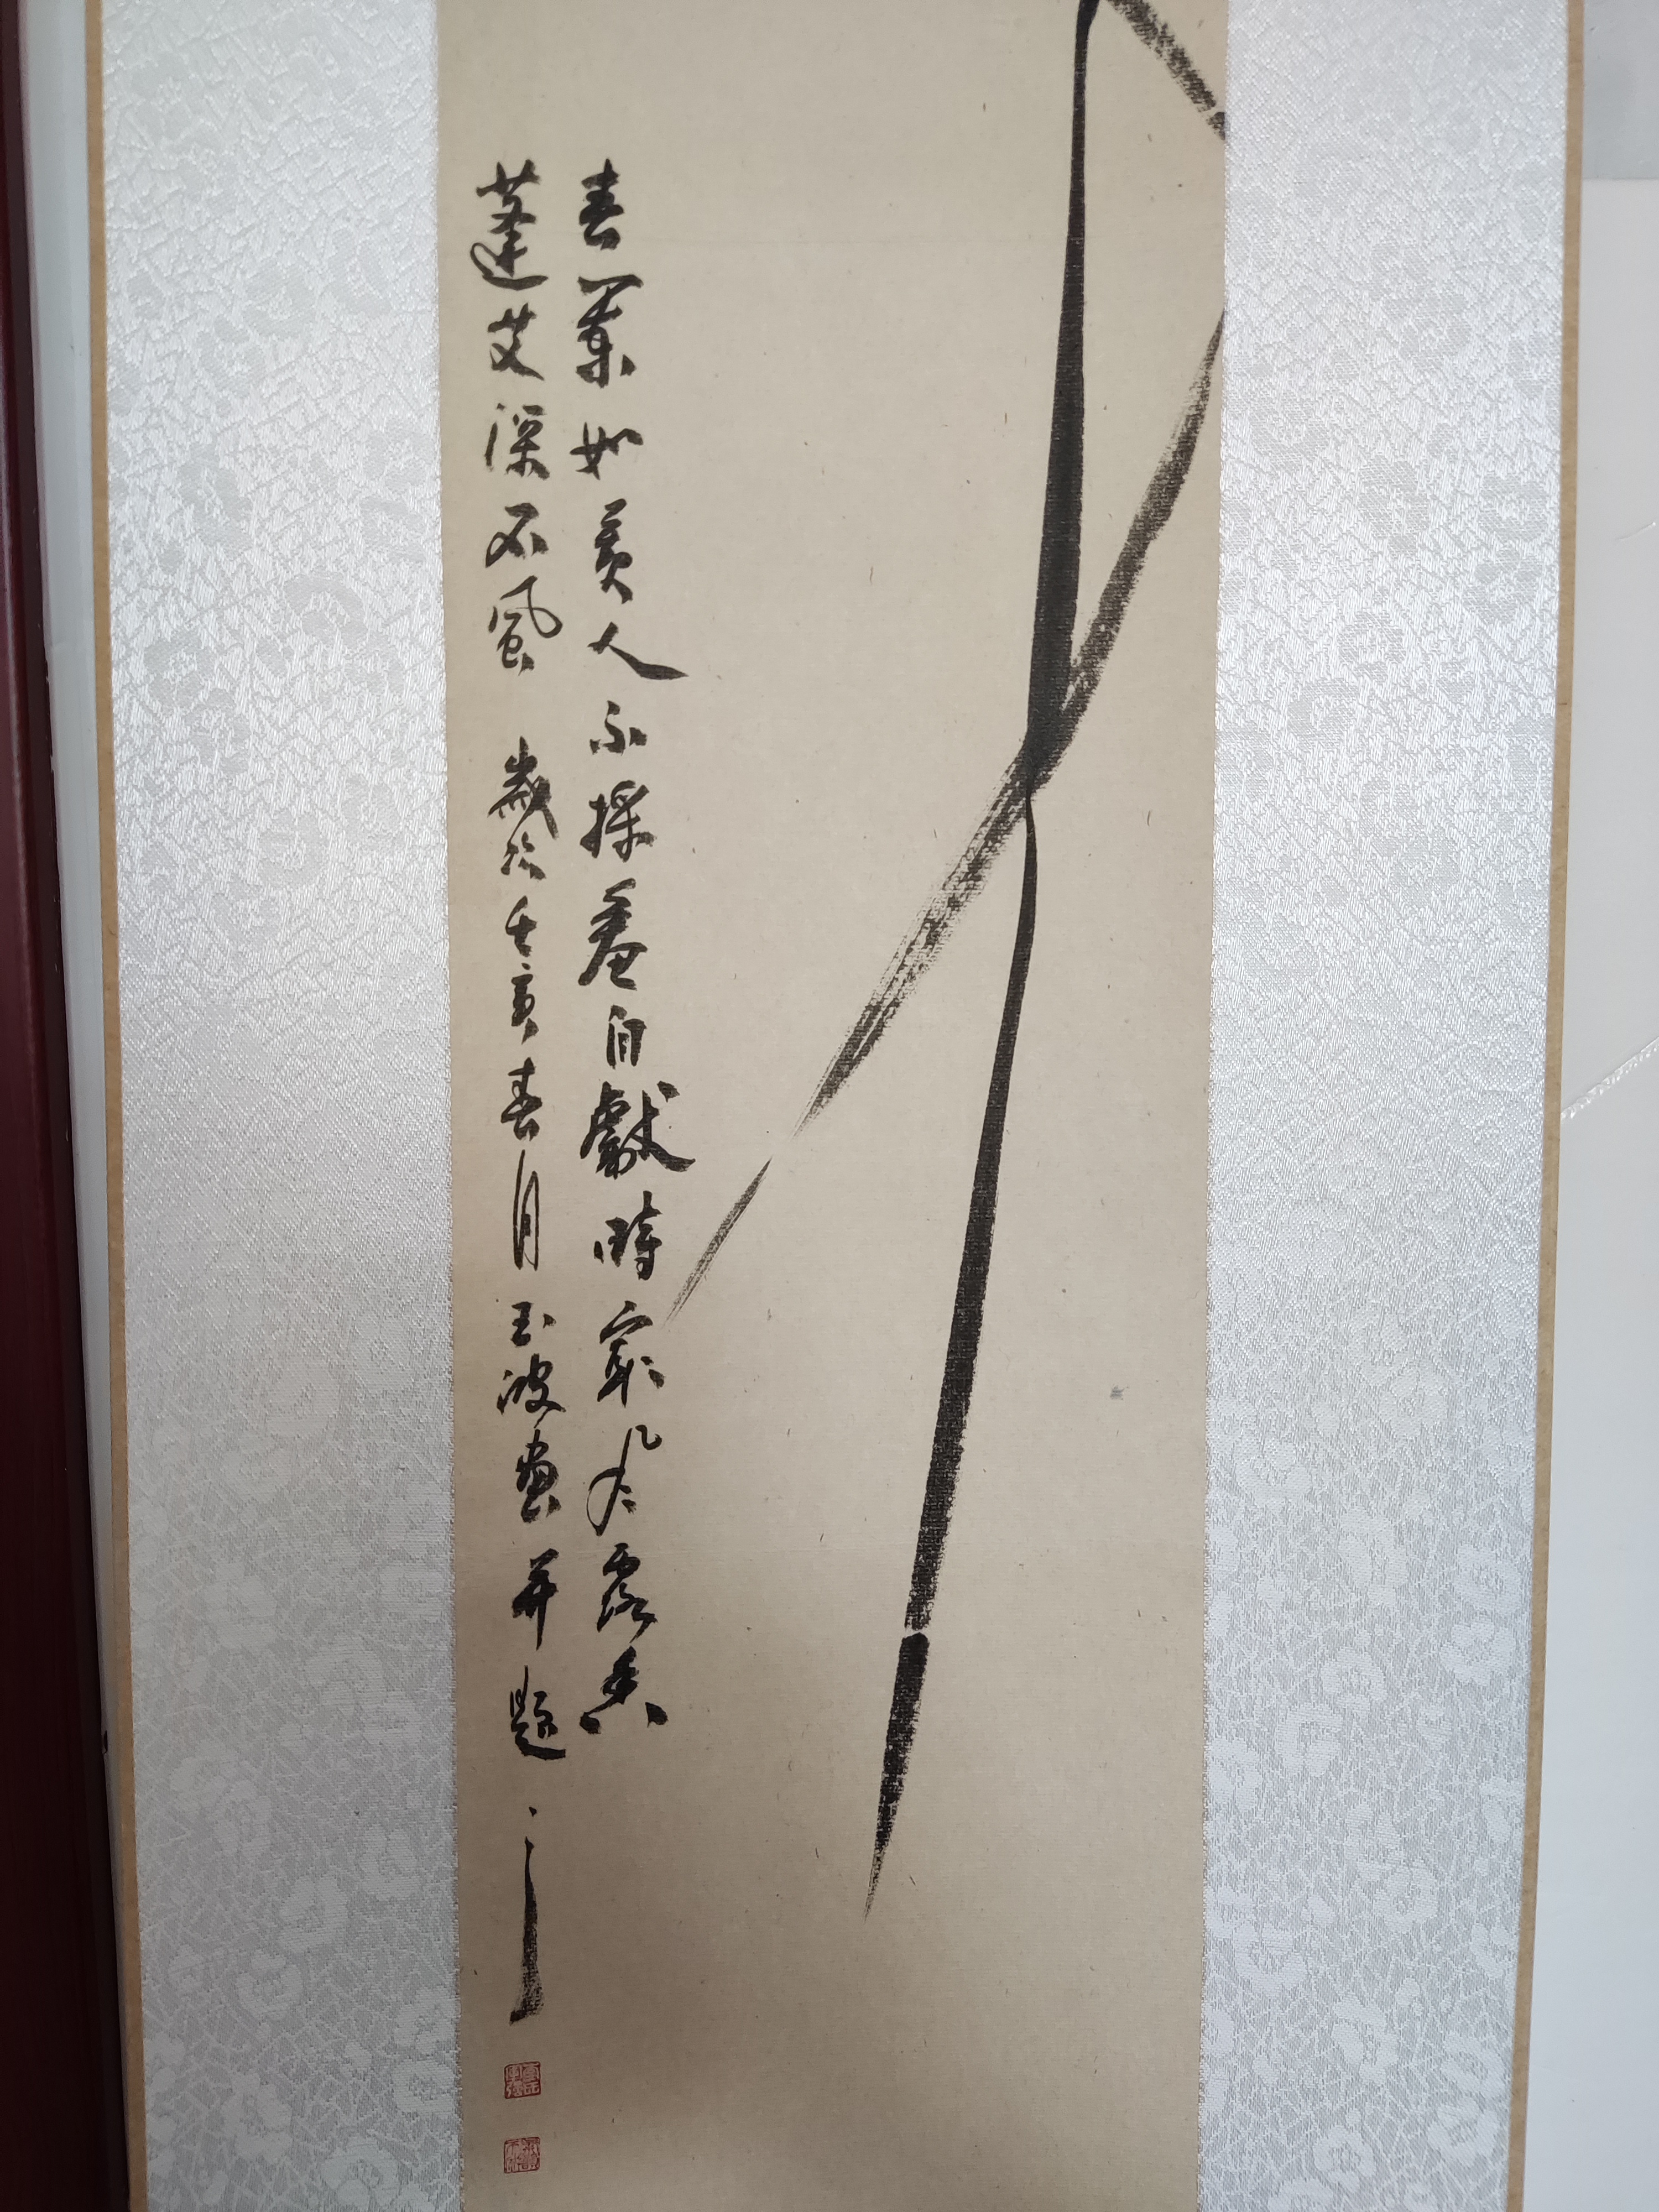 春蘭如美人不採羞自獻時聞風露香
蓬艾深不 歲於壬寅春月 玉波畫并題